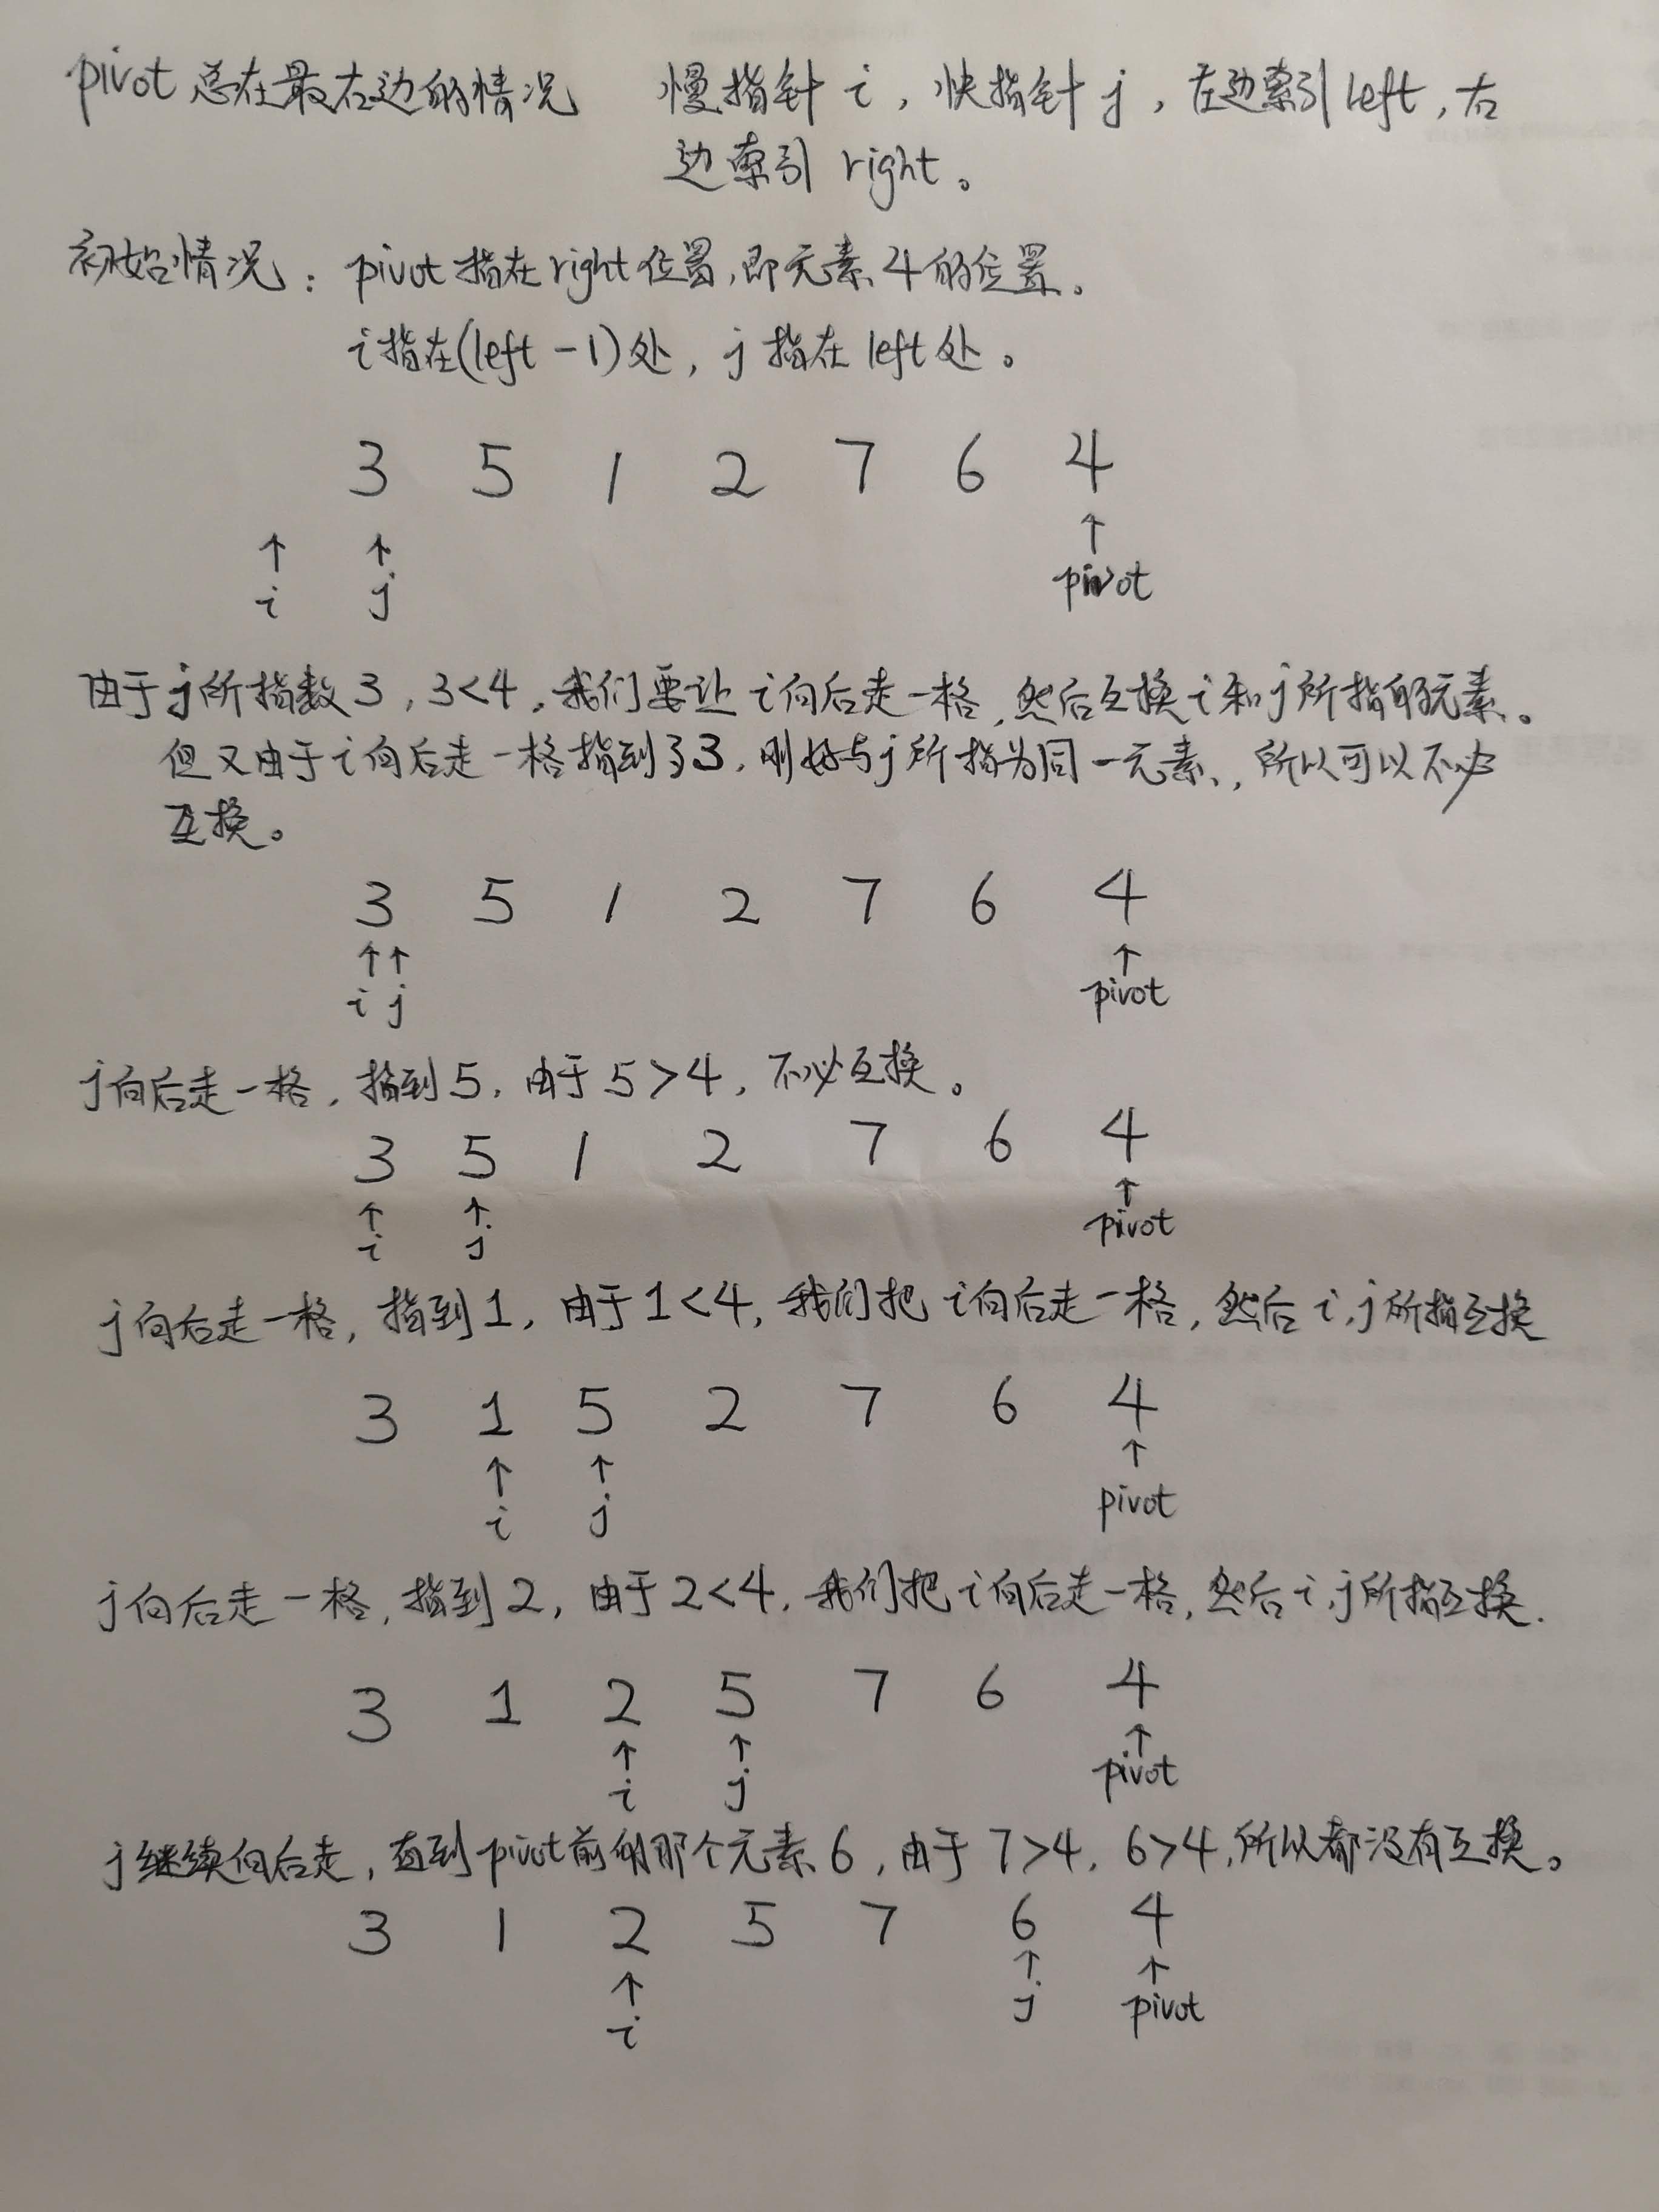 pivot 总在最右边的情况 慢指针 i，快指针 j，左边索引 left，右
边索引 right。
初始情况：pivot 指在 right 位置，即元素 4 的位置。
i 指在(left - 1)处，j 指在 left 处。
3 5 1 2 7 6 4
↑ ↑ ↑
i j pivot
由于 j 所指数 3，3<4，我们要让 i 向后走一格，然后互换 i 和 j 所指的元素。
但又由于 i 向后走一格指到了3，刚好与 j 所指为同一元素，所以可以不必
互换。
3 5 1 2 7 6 4
↑ ↑ ↑
i j pivot
j 向后走一格，指到 5，由于 5>4，不必互换。
3 5 1 2 7 6 4
↑ ↑ ↑
i j pivot
j 向后走一格，指到 1，由于 1<4，我们把 i 向后走一格，然后 i，j 所指互换
3 1 5 2 7 6 4
↑ ↑ ↑
i j pivot
j 向后走一格，指到 2，由于 2<4，我们把 i 向后走一格，然后 i，j 所指互换.
3 1 2 5 7 6 4
↑ ↑ ↑
i j pivot
j 继续向后走，直到 pivot 前的那个元素 6，由于 7>4，6>4，所以都没有互换。
3 1 2 5 7 6 4
↑ ↑ ↑
i j pivot